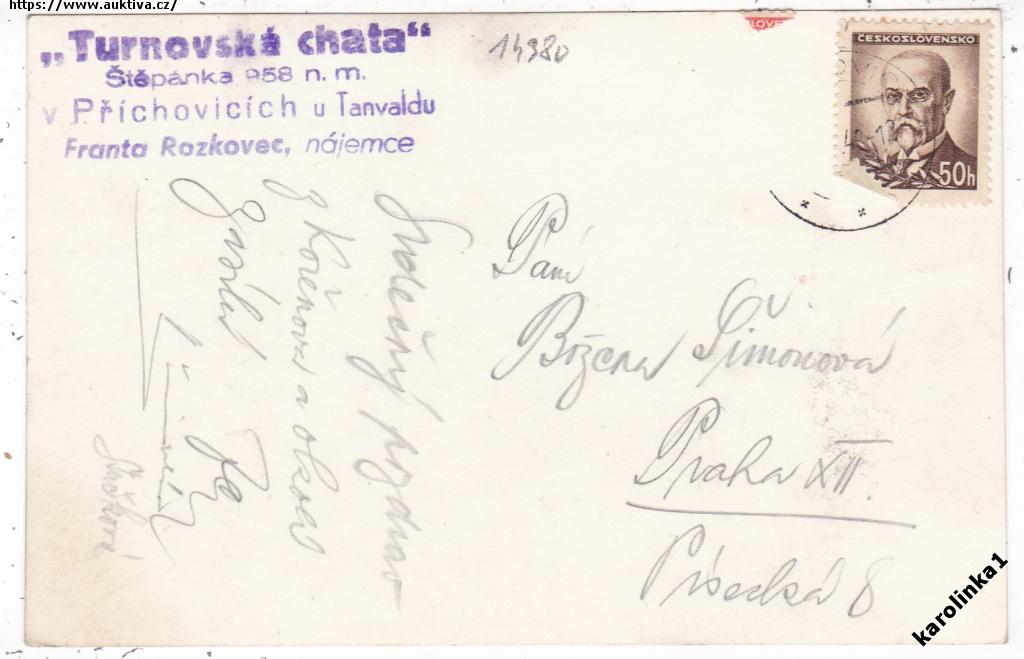 https://www.auktiva.cz/
„Turnovská chata“
Štěpánka 958 n. m.
v Příchovicích u Tanvaldu
Franta Rozkovec, nájemce
14980
ČESKOSLOVENSKO
50h
Srdečný pozdrav
z Kořenova a okolí
zasílá
Paní
Božena Šimonová
Praha XII.
Písecká 8
karolinka1